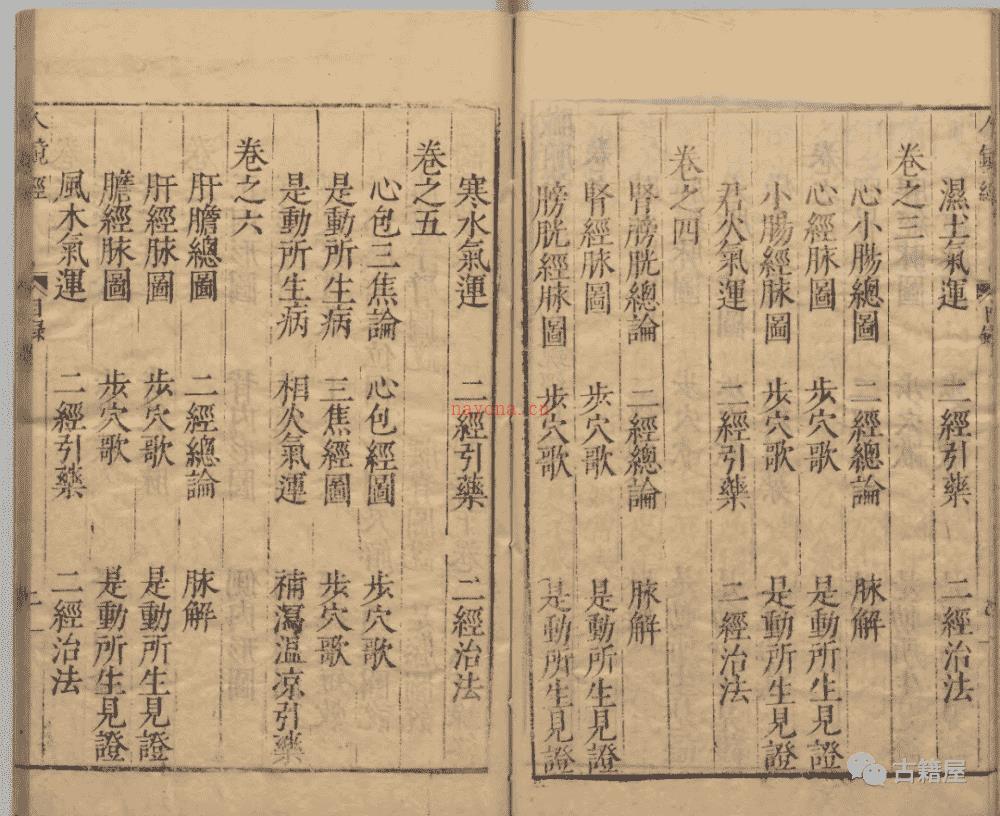 濕土氣運 二經引藥 二經治法
卷之三
心小腸總圖 二經總論 脉解
心經脉圖 步穴歌 是動所生見證
小腸經脉圖 步穴歌 是動所生見證
君火氣運 二經引藥 二經治法
卷之四
腎膀胱總論 二經總論 脉解
腎經脉圖 步穴歌 是動所生見證
膀胱經脉圖 步穴歌 是動所生見證
寒水氣運 二經引藥 二經治法
卷之五
心包三焦論 心包經圖 步穴歌
是動所生病 三焦經圖 步穴歌
是動所生病 相火氣運 補瀉溫凉引藥
卷之六
肝膽總圖 二經總論 脉解
肝經脉圖 步穴歌 是動所生見證
膽經脉圖 步穴歌 是動所生見證
風木氣運 二經引藥 二經治法
人鏡經 目録 二
nayona.cn
古籍屋